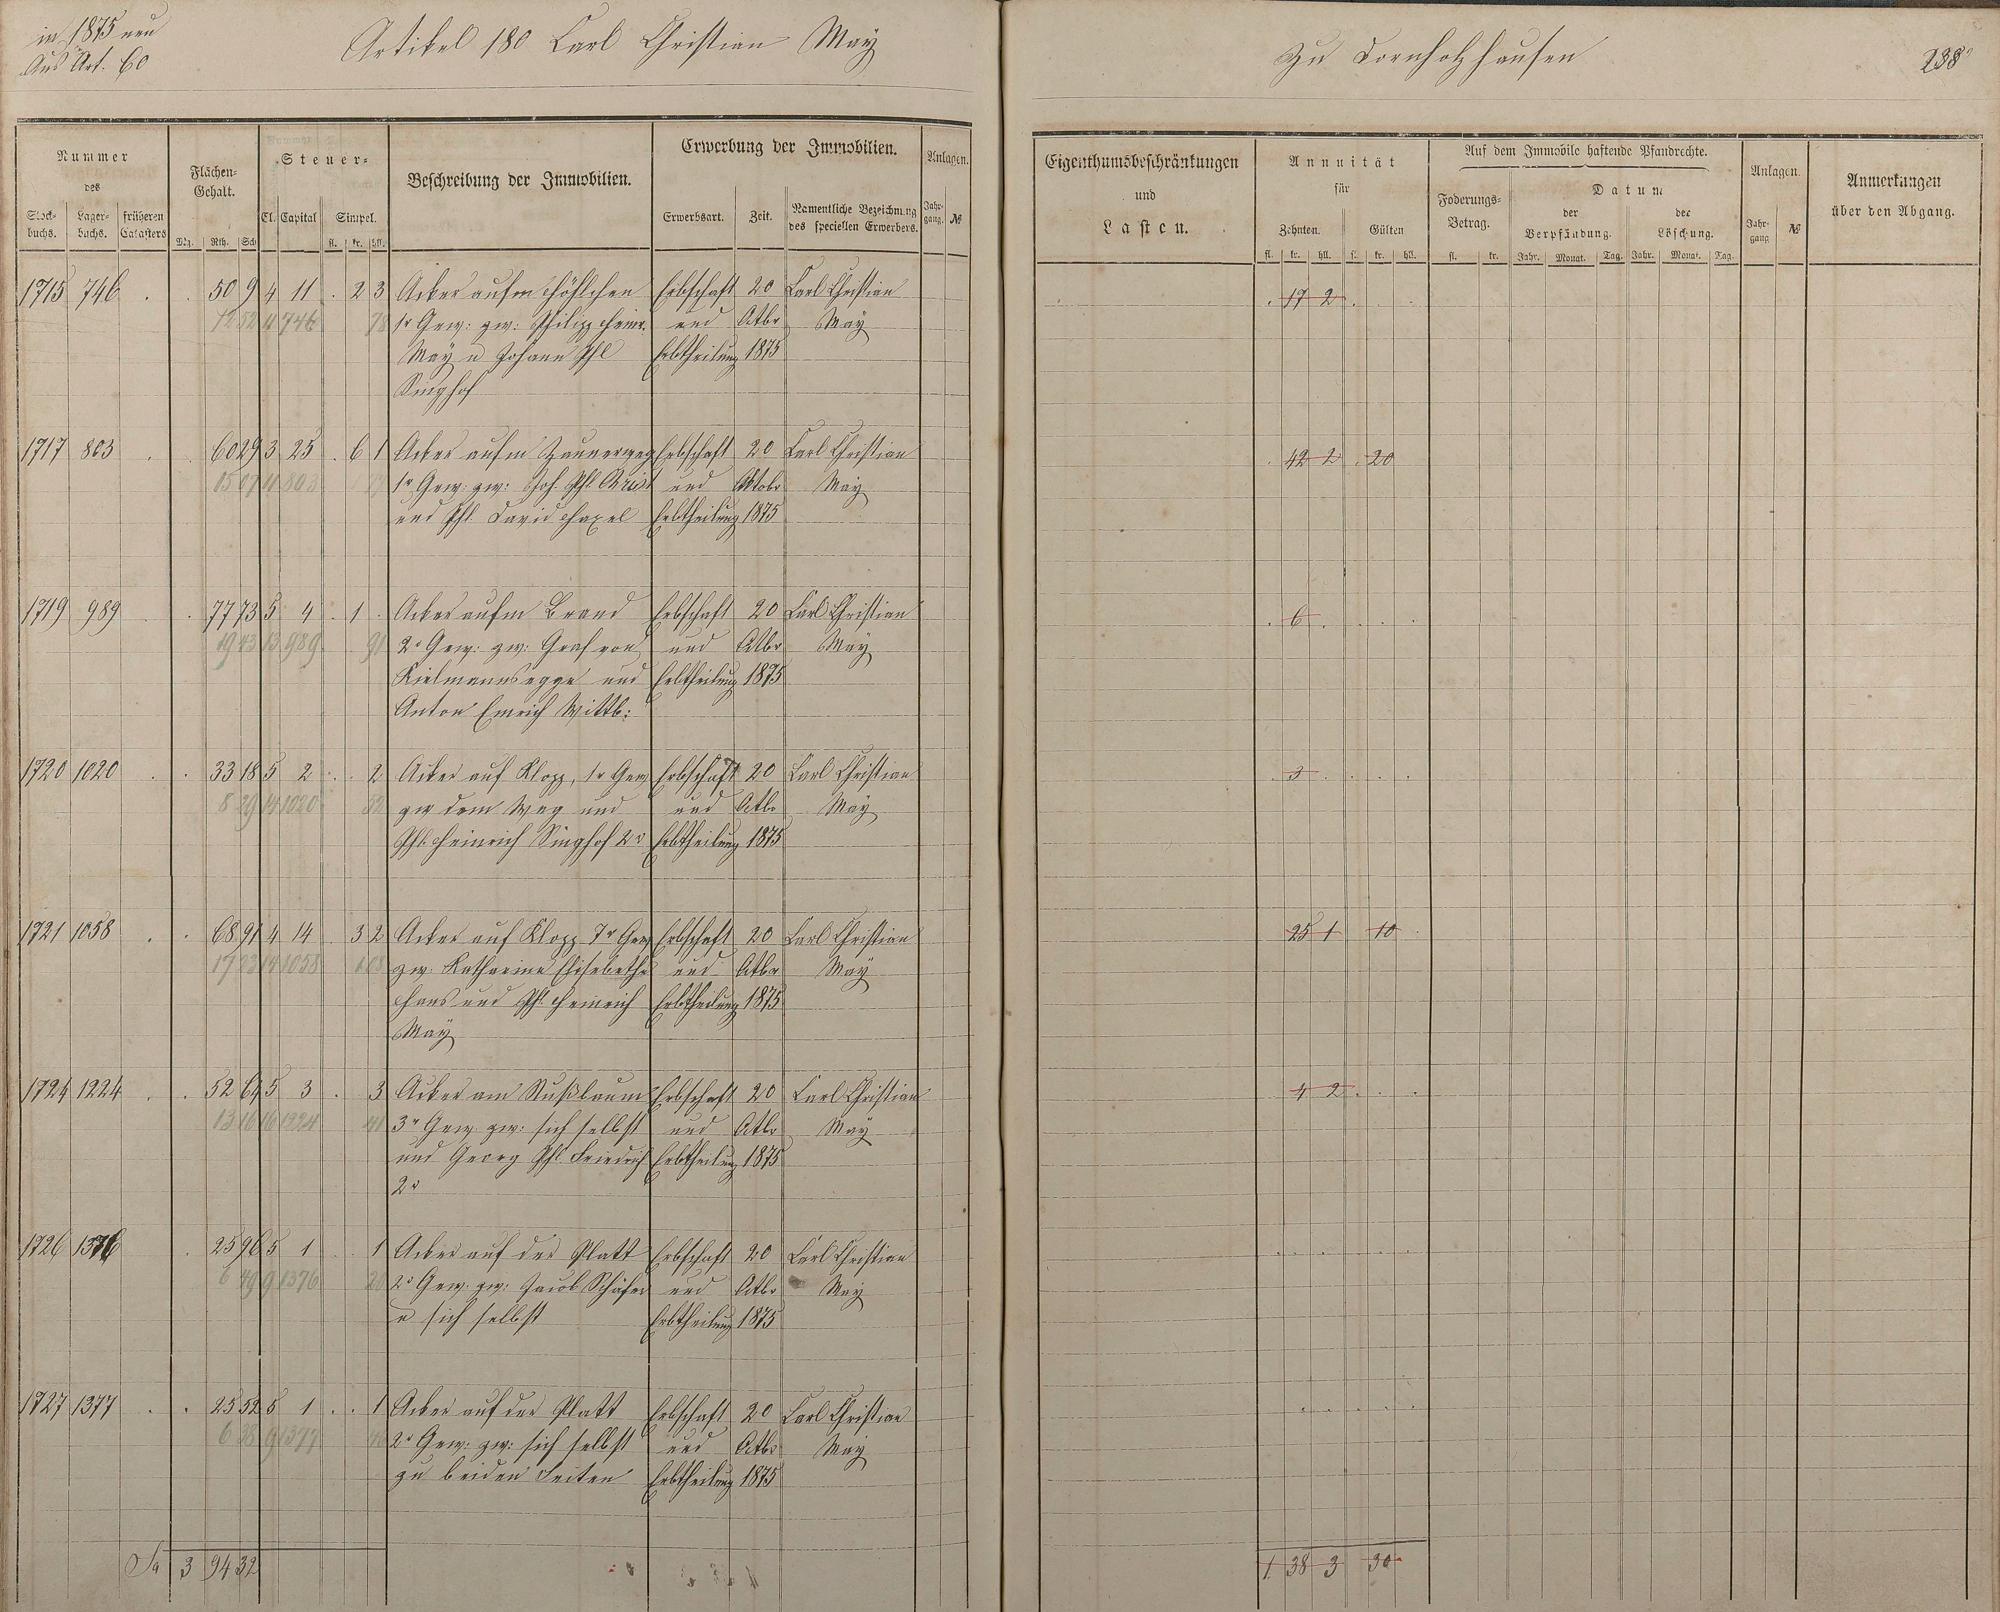 in 1875 neu
Aus Art. 60
Artikel 180 Carl Christian May
zu Dornholzhausen
238
Nummer
des
Stockbuchs. Lagerbuchs. früheren Catasters
Flächen-Gehalt.
Mg. Rth. Sch
Steuer-
Cl. Capital Simpel.
fl. kr. hll.
Beschreibung der Immobilien.
Erwerbung der Immobilien.
Erwerbsart. Zeit. Namentliche Bezeichnung des speciellen Erwerbers.
Anlagen.
Jahrgang. №
Eigenthumsbeschränkungen
und
Lasten.
Annuität
für
Zehnten. Gülten
fl. kr. hll. fl. kr. hll.
Auf dem Immobile haftende Pfandrechte.
Foderungs-Betrag.
fl. kr.
Datum
der Verpfändung. der Löschung.
Jahr. Monat. Tag. Jahr. Monat. Tag.
Anlagen.
Jahrgang №
Anmerkungen
über den Abgang.
1715 746 . . 50 9 4 11 . 2 3 Acker aufm Höhlchen Erbschaft 20 Carl Christian . 17 2 . . .
12 52 11 746 78 1r Gew: zw: Philipp Heinr. und Otbr May
May u Johann Phl Erbtheilung 1875
Singhof
1717 803 . . 60 29 3 25 . 6 1 Acker aufm Zaunerweg Erbschaft 20 Carl Christian . 42 2 . 20
15 07 11 803 1r Gew: zw: Joh. Phl. und Oktobr May
und Phl. David Haxel Erbtheilung 1875
1719 989 . . 77 73 5 4 . 1 . Acker aufm Brand Erbschaft 20 Carl Christian . 6 . . . .
19 43 13 989 91 2r Gew: zw: Graf von und Otbr May
Kielmannsegge und Erbtheilung 1875
Anton Emrich Wittb:
1720 1020 . . 33 18 5 2 . . 2 Acker auf Klopp, 1r Gew Erbschaft 20 Carl Christian . 3 . . . .
8 29 14 1020 52 zw dem Weg und und Otbr May
Phl. Heinrich Singhof 2r Erbtheilung 1875
1721 1058 . . 68 91 4 14 . 3 2 Acker auf Klopp 7r Gew Erbschaft 20 Carl Christian 25 1 10 .
17 23 14 1058 108 zw: Katharine Elisabethe und Otbr May
Hans und Phl. Heinrich Erbtheilung 1875
May
1724 1224 . . 52 64 5 3 . 3 Acker am Nußbaum Erbschaft 20 Carl Christian 4 2 . . .
13 16 16 1224 41 3r Gew: zw: sich selbst und Otbr May
und Georg Phl. Friedrich Erbtheilung 1875
2r
1726 1376 . 25 96 5 1 . 1 Acker auf der Platt Erbschaft 20 Carl Christian . . . . . .
6 49 9 1376 20 2r Gew: zw: Jacob Schäfer und Otbr May
u sich selbst Erbtheilung 1875
1727 1377 . . 25 52 5 1 . . 1 Acker auf der Platt Erbschaft 20 Carl Christian . . . . .
6 38 9 1377 2r Gew: zw: sich selbst und Otbr May
zu beiden Seiten Erbtheilung 1875
Sa 3 94 32
1 38 3 30